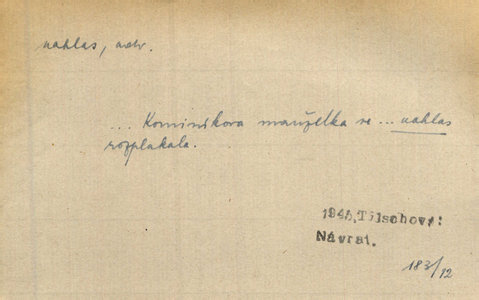 nahlas, adv.
... Kominíkova manželka se ... nahlas
rozplakala.
Tilschová:
Návrat.
183/12